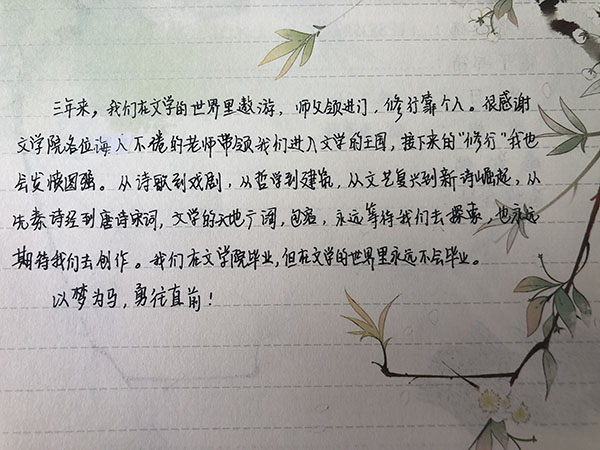 三年来，我们在文学的世界里遨游，师父领进门，修行靠个人。很感谢
文学院各位诲人不倦的老师带领我们进入文学的王国，接下来的“修行”我也
会发愤图强。从诗歌到戏剧，从哲学到建筑，从文艺复兴到新诗崛起，从
先秦诗经到唐诗宋词，文学的天地广阔，包容，永远等待我们去探索，也永远
期待我们去创作。我们在文学院毕业，但在文学的世界里永远不会毕业。
以梦为马，勇往直前！